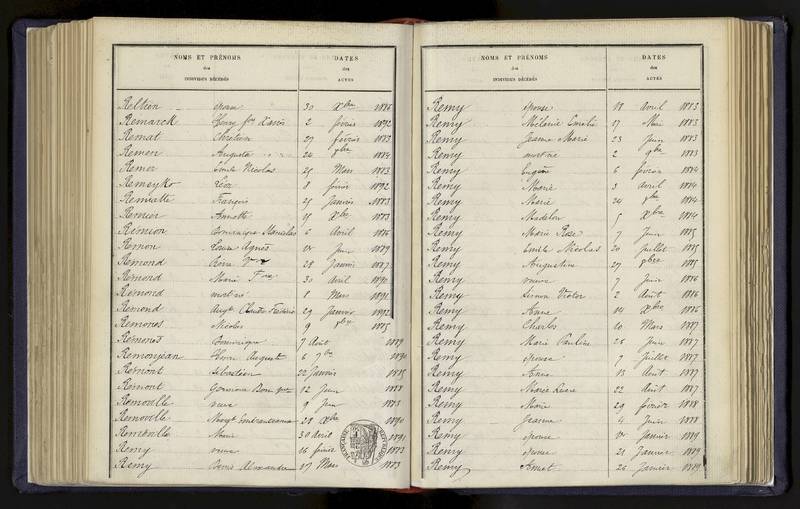 NOMS ET PRÉNOMS
des
INDIVIDUS DÉCÉDÉS
DATES
des
ACTES
épouse 30 Xbre 1886
Remarck 2 février 1892
Remat Chrétien 29 février 1883
Remen Augusta 24 1884
Remer Emile Nicolas 25 Mars 1883
Remeyko 8 1892
François 25 Janvier 1883
Remier Annette 15 Xbre 1883
Remion Dominique Stanislas 6 Avril 1886
Remon Agnès Juin 1889
Remond 28 Janvier 1887
Remond Marie 30 avril
Remond mort né 8 Mars 1891
Remond Augte Claude Frédéric 29 Janvier 1892
Nicolas 9 1885
Dominique 7 Août 1889
Remonjean Henri August 6 1890
Remont Sébastien 22 Janvier 1885
Remont 12 Juin 1888
Removille veuve Juin 1883
Removille 28 Xbre 1890
Marie 30 avril 1891
Remy veuve 16 février 1883
Remy Denis Alexandre 17 Mars 1883
NOMS ET PRÉNOMS
des
INDIVIDUS DÉCÉDÉS
DATES
des
ACTES
Remy épouse 18 Avril 1883
Remy Mélanie Emelie 17 Mai 1883
Remy Jeanne Marie 23 Juin 1883
Remy mort né 2 1883
Remy Eugène 6 février 1884
Remy Marie 3 avril 1884
Remy Marie 24 1884
Remy Madelon 5 Xbre 1884
Remy Marie Rose 7 Juin 1885
Remy Emile Nicolas 20 Juillet 1885
Remy Augustine 27 1885
Remy veuve 7 Juin 1886
Remy Simon Victor 2 Août 1886
Remy Anne 14 Xbre 1886
Remy Charles 10 Mars 1887
Remy Marie Pauline 28 Juin 1887
Remy épouse 7 Juillet 1887
Remy Anne 13 Août 1887
Remy Marie 22 Août 1887
Remy Marie 29 février 1888
Remy Jeanne 4 Juin 1888
Remy épouse Janvier 1889
Remy 21 Janvier 1889
Remy 26 Janvier 1889